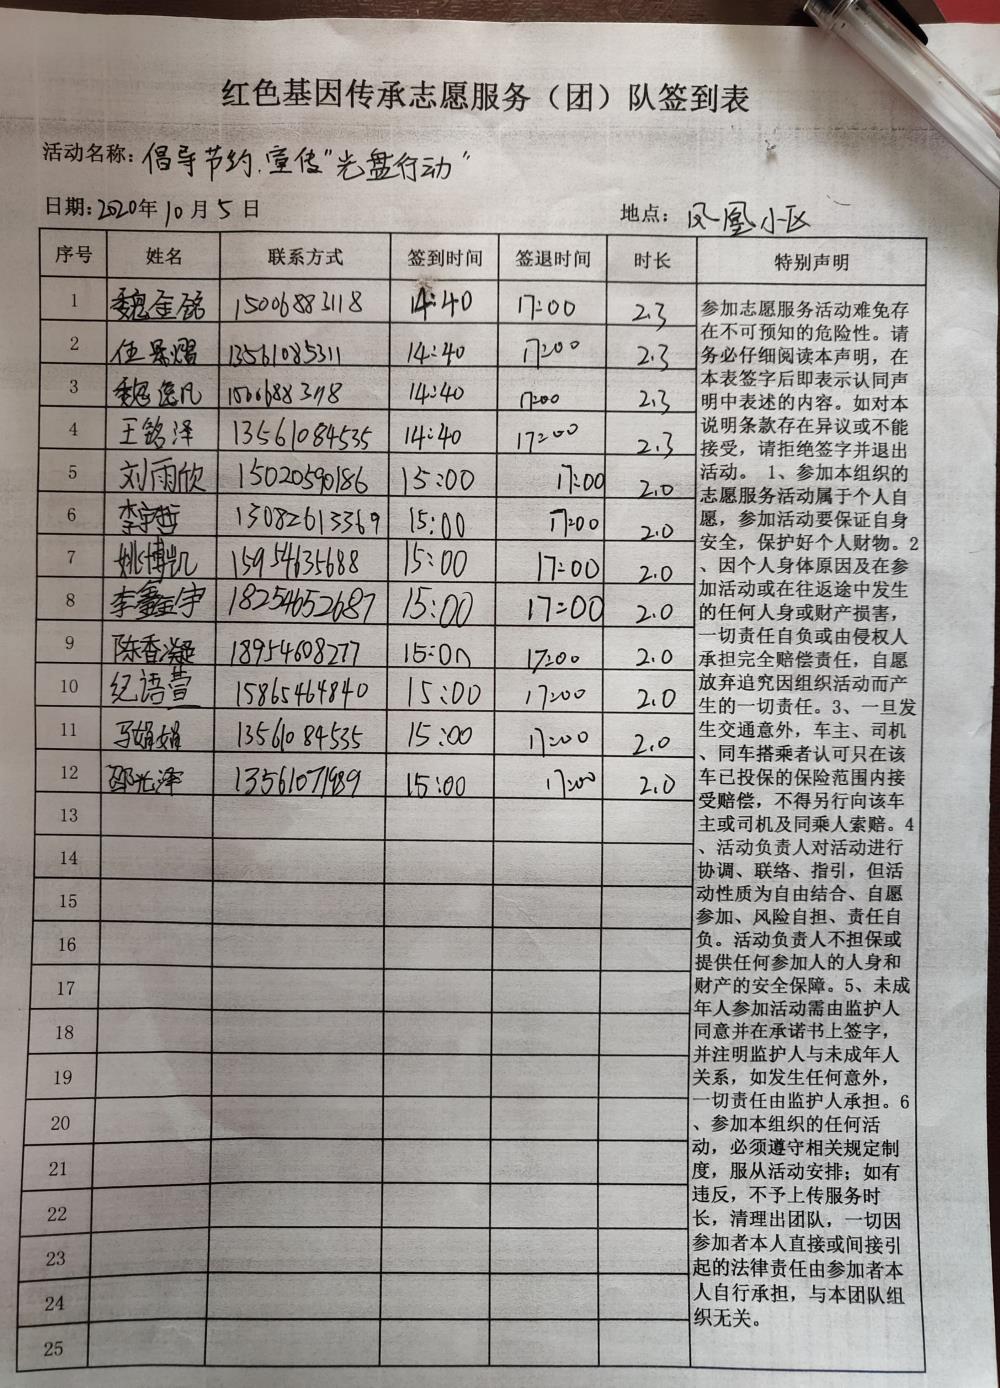 红色基因传承志愿服务（团）队签到表
活动名称：倡导节约.宣传"光盘行动"
日期：2020年10月5日 地点：凤凰小区
序号 姓名 联系方式 签到时间 签退时间 时长 特别声明
1 魏金铭 15006883118 14:40 17:00 2.3
2 13561085311 14:40 17:00 2.3
3 魏逸凡 15006883118 14:40 17:00 2.3
4 王铭泽 13561084535 14:40 17:00 2.3
5 刘雨欣 15020590186 15:00 17:00 2.0
6 李宇哲 13082613369 15:00 17:00 2.0
7 姚博凯 15954635688 15:00 17:00 2.0
8 李鑫宇 18254652687 15:00 17:00 2.0
9 陈香凝 18954608277 15:00 17:00 2.0
10 纪语萱 15865464840 15:00 17:00 2.0
11 马娟娟 13561084535 15:00 17:00 2.0
12 邵光泽 13561071989 15:00 17:00 2.0
13
14
15
16
17
18
19
20
21
22
23
24
25
参加志愿服务活动难免存
在不可预知的危险性。请
务必仔细阅读本声明，在
本表签字后即表示认同声
明中表述的内容。如对本
说明条款存在异议或不能
接受，请拒绝签字并退出
活动。 1、参加本组织的
志愿服务活动属于个人自
愿，参加活动要保证自身
安全，保护好个人财物。2
、因个人身体原因及在参
加活动或在往返途中发生
的任何人身或财产损害，
一切责任自负或由侵权人
承担完全赔偿责任，自愿
放弃追究因组织活动而产
生的一切责任。3、一旦发
生交通意外，车主、司机
、同车搭乘者认可只在该
车已投保的保险范围内接
受赔偿，不得另行向该车
主或司机及同乘人索赔。4
、活动负责人对活动进行
协调、联络、指引，但活
动性质为自由结合、自愿
参加、风险自担、责任自
负。活动负责人不担保或
提供任何参加人的人身和
财产的安全保障。5、未成
年人参加活动需由监护人
同意并在承诺书上签字，
并注明监护人与未成年人
关系，如发生任何意外，
一切责任由监护人承担。6
、参加本组织的任何活
动，必须遵守相关规定制
度，服从活动安排；如有
违反，不予上传服务时
长，清理出团队，一切因
参加者本人直接或间接引
起的法律责任由参加者本
人自行承担，与本团队组
织无关。